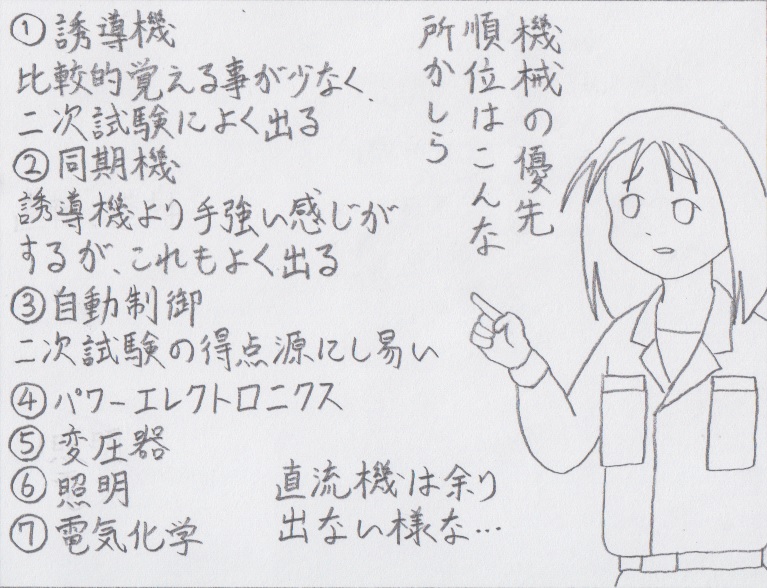 機械の優先
順位はこんな
所かしら
①誘導機
比較的覚える事が少なく、
二次試験によく出る
②同期機
誘導機より手強い感じが
するが、これもよく出る
③自動制御
二次試験の得点源にし易い
④パワーエレクトロニクス
⑤変圧器
⑥照明
⑦電気化学
直流機は余り
出ない様な…